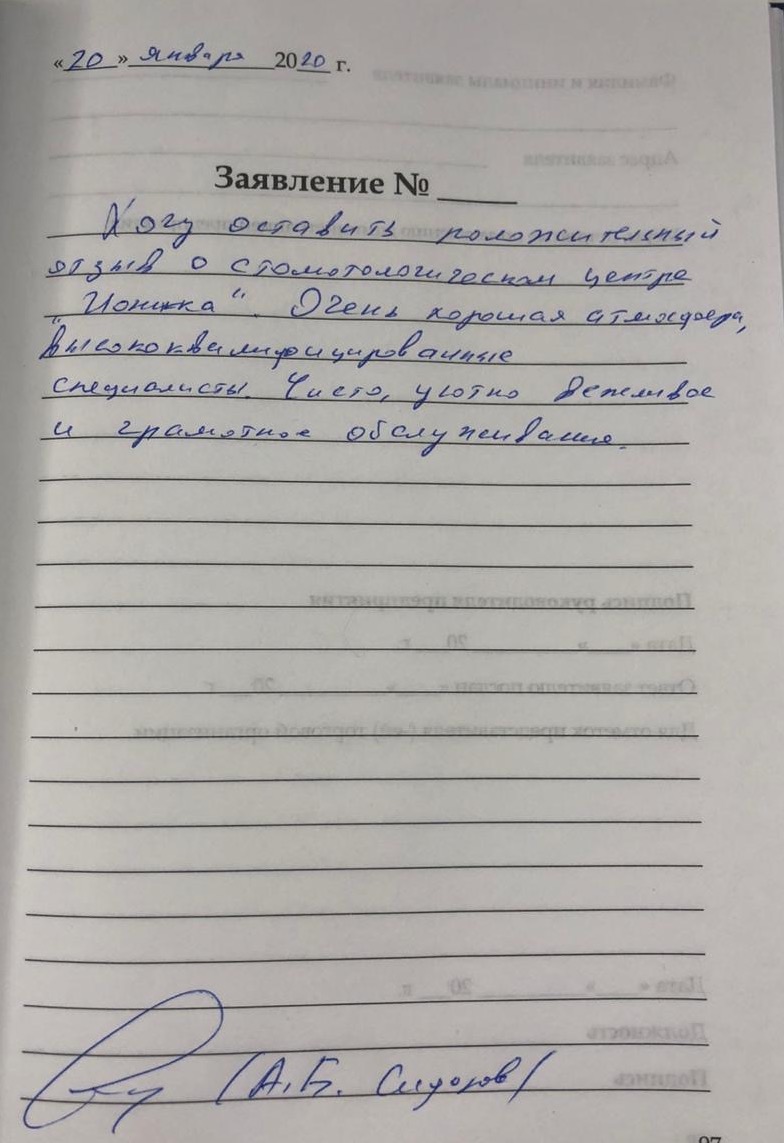 «20» января 2020 г.
Заявление №
Хочу оставить положительный
отзыв о стомотологическом центре
"Ионика". Очень хорошая атмосфера,
высококвалифицированные
специалисты. Чисто, уютно вежливое
и грамотное обслуживание.
(А.Б. Сидоров)
97